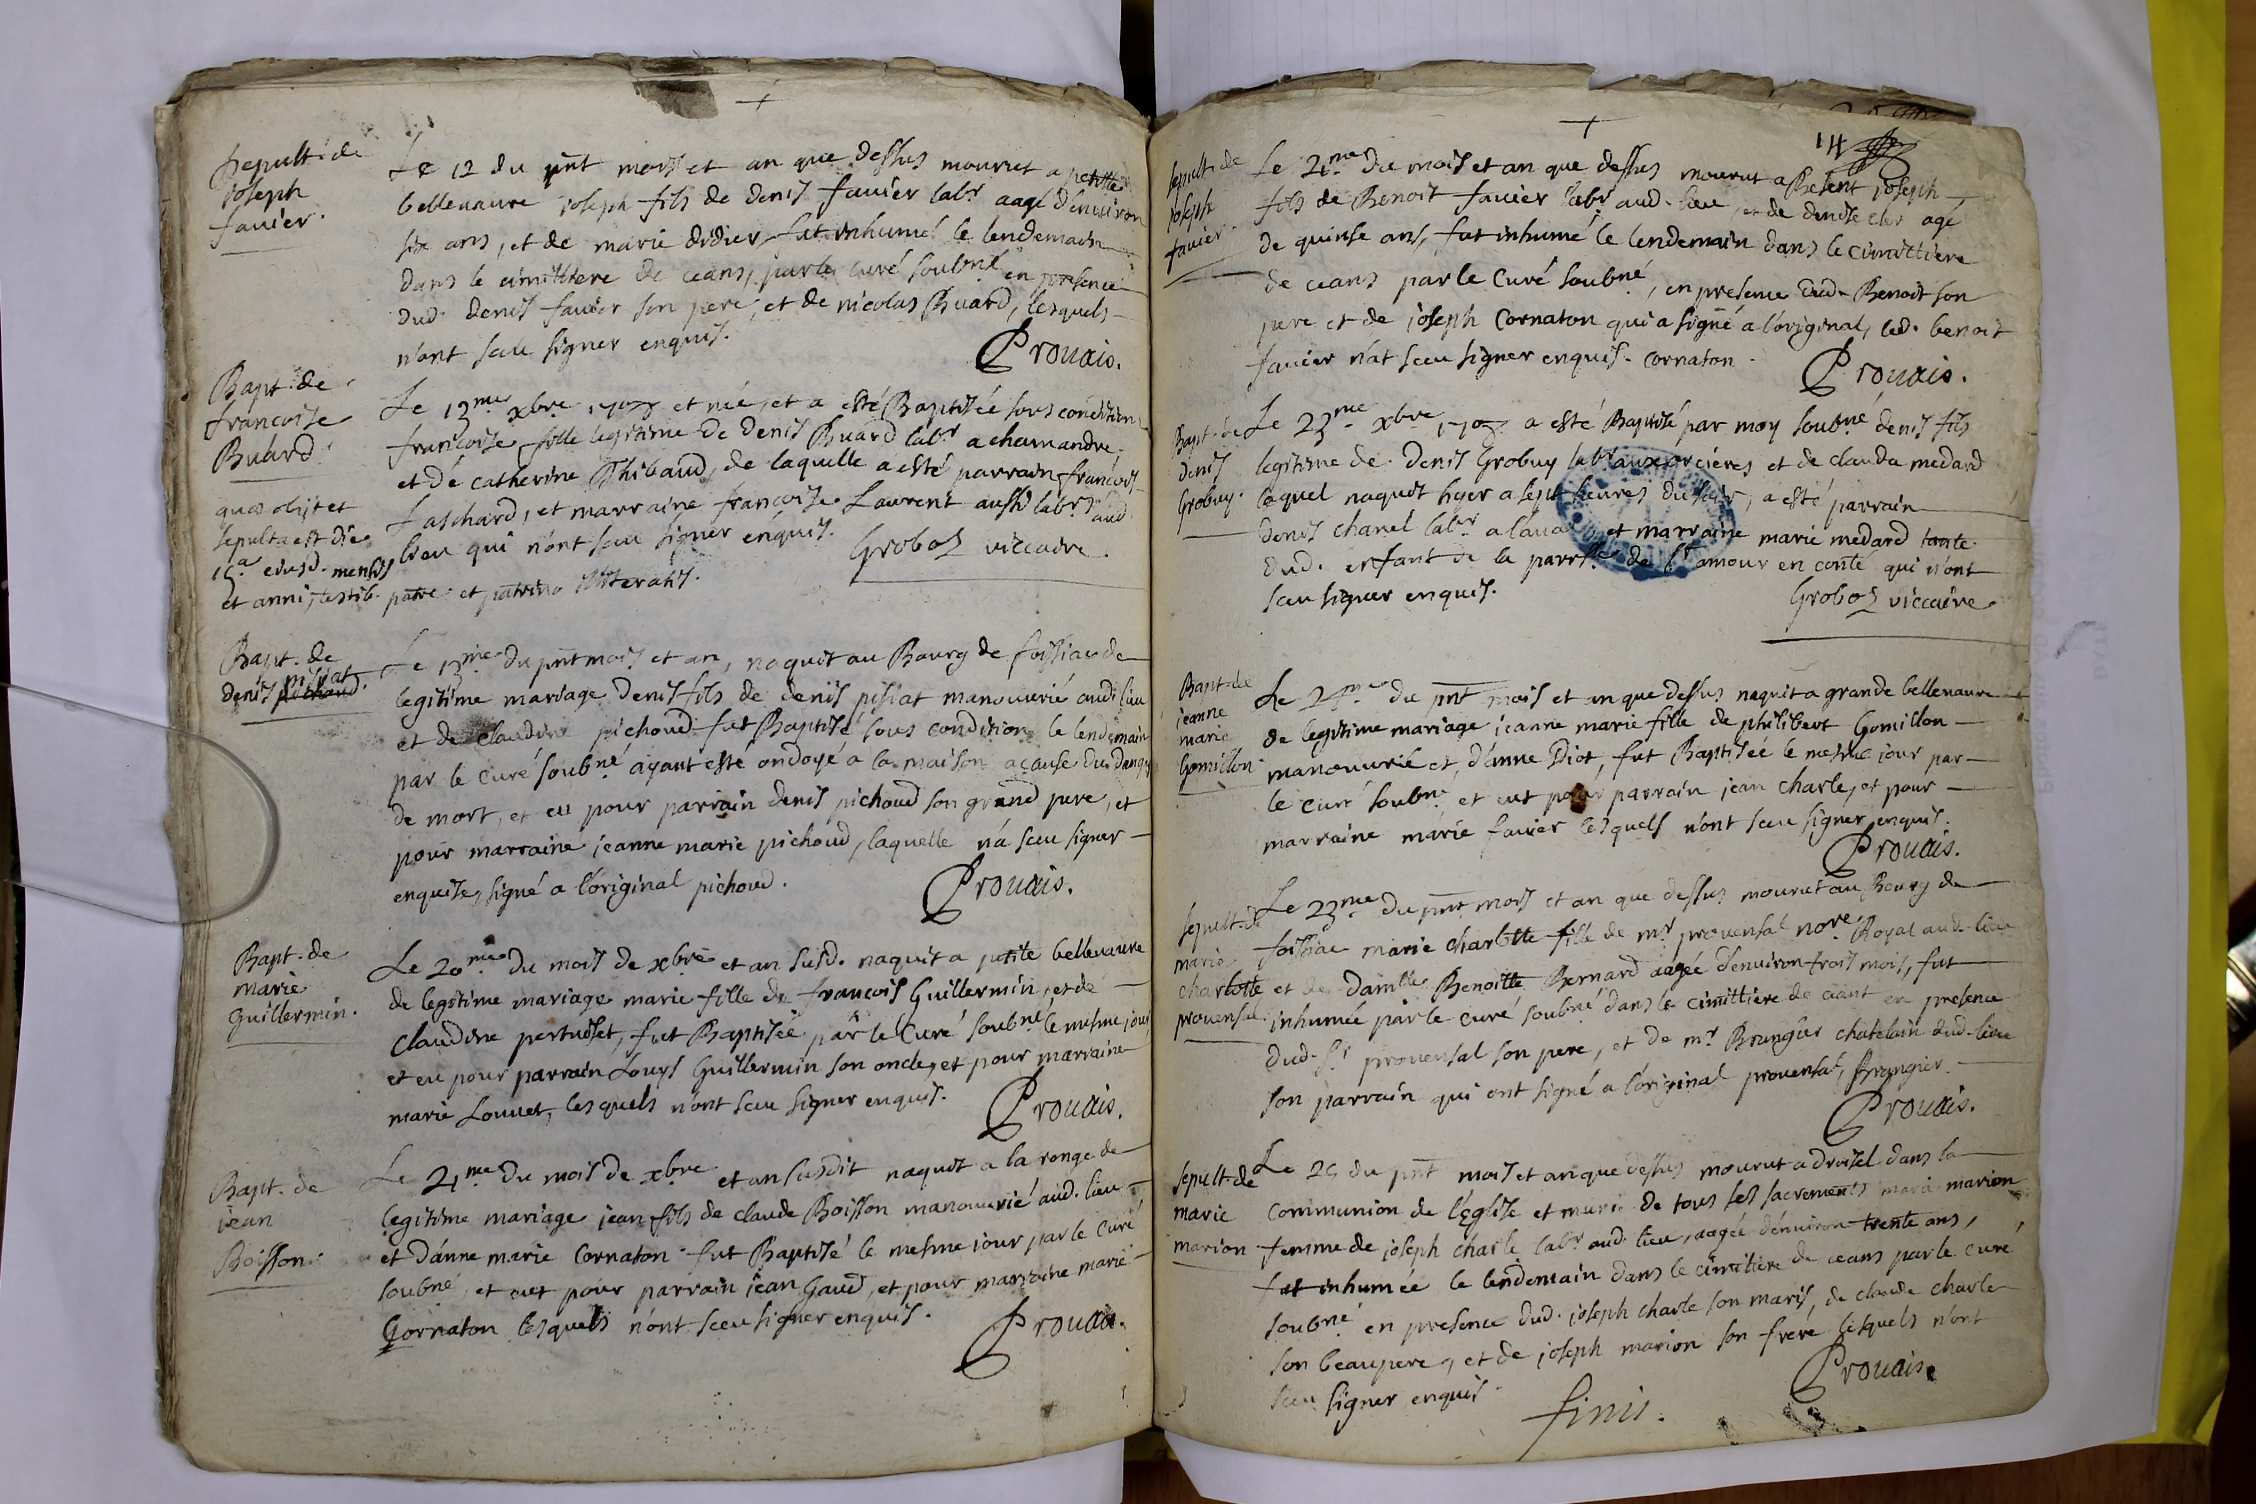 Sepult. de
joseph
favier.
Le 12 du pnt mois et an que dessus mourut a petitte
bellevavre joseph fils de denis favier labr aagé d'environ
six ans, et de marie didier, fut inhumé le lendemain
dans le cimittiere de ceans, par le curé soubné en presence
dud. denis favier son pere, et de nicolas Buard, lesquels
n'ont sceu signer enquis.
Prouais.
Bapt. de
francoise
Buard.
Le 13me xbre et née, et a esté Baptisée sous condition
francoise fille legitime de denis Buard labr a chamandre
et de catherine Thibaud, de laquelle a esté parrain francois
Laschard, et marraine francoise Laurent aussi labrs aud.
lieu qui n'ont sceu signer enquis.
Groboz viccaire.
quae obijt et
sepulta est die
15a eiusd. mensis
et anni, testib. patre et patrino illiteratis.
Bapt. de
denis pisiat
pichoud.
Le 13me du pnt mois et an, naquit au Bourg de foissiac de
legitime mariage denis fils de denis pisiat manouvrié aud. lieu
et de claudine pichoud fut Baptisé sous condition le lendemain
par le curé soubné ayant esté ondoyé a la maison a cause du danger
de mort, et eu pour parrain denis pichoud son grand pere, et
pour marraine jeanne marie pichoud, laquelle n'a sceu signer
enquise, signé a l'original pichoud.
Prouais.
Bapt. de
marie
Guillermin.
Le 20me du mois de xbre et an susd. naquit a petite bellevavre
de legitime mariage marie fille de francois Guillermin, et de
claudine pertuiset, fut Baptisée par le Curé soubné le mesme jour
et eu pour parrain Louys Guillermin son oncle, et pour marraine
marie Louvet, lesquels n'ont sceu signer enquis.
Prouais.
Bapt. de
jean
Boisson.
Le 21me du mois de xbre et an susdit naquit a la ronge de
legitime mariage jean fils de claude Boisson manouvrié aud. lieu
et d'anne marie Cornaton fut Baptisé le mesme jour par le curé
soubné, et eut pour parrain jean Gaud, et pour marraine marie
Cornaton lesquels n'ont sceu signer enquis.
Prouais.
14
Sepult. de
joseph
favier.
Le 21me du mois et an que dessus mourut a joseph
fils de Benoit favier labr aud. lieu, et de denise agé
de quinse ans, fut inhumé le lendemain dans le cimittiere
de ceans par le Curé soubné, en presence dud. Benoit son
pere et de joseph Cornaton qui a signé a l'original, led. benoit
favier n'at sceu signer enquis. Cornaton.
Prouais.
Bapt. de
denis
Grobuy.
Le 23me xbre a esté Baptisé par moy soubné denis fils
legitime de denis Grobuy labr aux et de clauda medard
lequel naquit hyer a sept heures du soir, a esté parrain
denis chanel labr a et marraine marie medard tante
dud. enfant de la parrsse de st amour en conté qui n'ont
sceu signer enquis.
Groboz viccaire
Bapt. de
jeanne
marie
Gomillon
Le du pnt mois et an que dessus naquit a grande bellevavre
de legitime mariage jeanne marie fille de philibert Gomillon
manouvrié et d'anne Diot, fut Baptisée le mesme jour par
le curé soubné et eut pour parrain jean charle, et pour
marraine marie favier lesquels n'ont sceu signer enquis.
Prouais.
Sepult. de
marie
charlotte
provensal
Le 23me du pnt mois et an que dessus mourut au Bourg de
foissiac marie charlotte fille de mr provensal nore Royal aud. lieu
et de damlle Benoitte Bernard aagée d'environ trois mois, fut
inhumée par le curé soubné dans le cimittiere de ceant en presence
dud. sr provensal son pere, et de mr Brangier chatelain dud. lieu
son parrain qui ont signé a l'original provensal, Brangier.
Prouais.
Sepult. de
marie
marion
Le 25 du pnt mois et an que dessus mourut a droisel dans la
Communion de l'Eglise et munie de tous les sacrements marie marion
femme de joseph charle labr aud. lieu, aagée d'environ trente ans,
fut inhumée le lendemain dans le cimitiere de ceans par le curé
soubné en presence dud. joseph charle son maris, de claude charle
son beaupere, et de joseph marion son frere lesquels n'ont
sceu signer enquis.
Prouais.
finis.